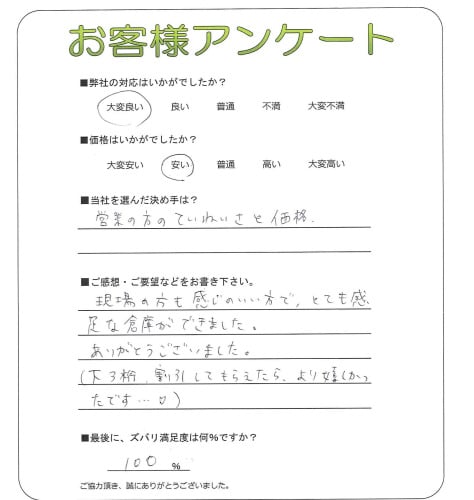 お客様アンケート
■弊社の対応はいかがでしたか？
大変良い 良い 普通 不満 大変不満
■価格はいかがでしたか？
大変安い 安い 普通 高い 大変高い
■当社を選んだ決め手は？
営業の方のていねいさと価格.
■ご感想・ご要望などをお書き下さい。
現場の方も感じのいい方で、とても感
足な倉庫ができました。
ありがとうございました。
(下3桁、割引してもらえたら、より嬉しかっ
たです…♡)
■最後に、ズバリ満足度は何%ですか？
100 %
ご協力頂き、誠にありがとうございました。